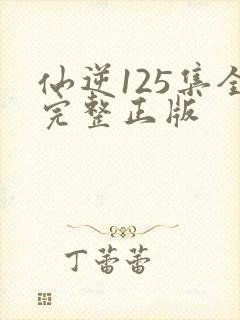 仙逆125集全
完整正版
丁蕾蕾